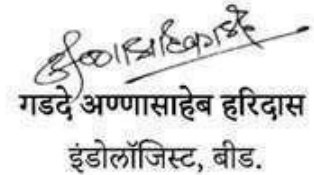 गडदे अण्णासाहेब हरिदास
इंडोलॉजिस्ट, बीड.